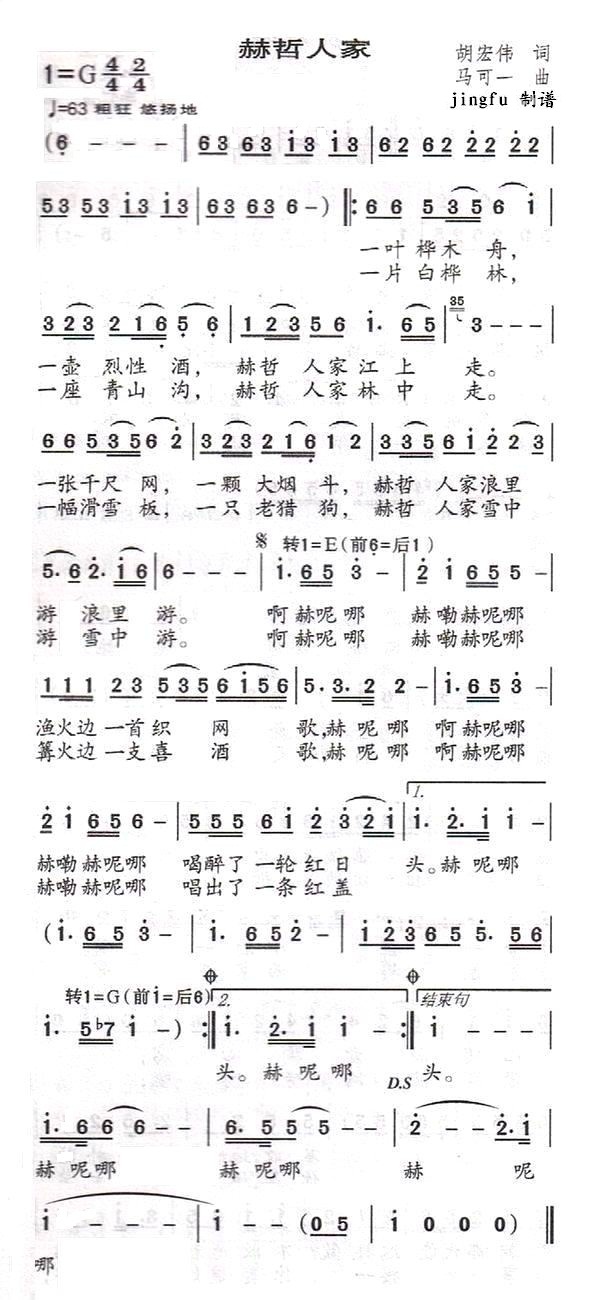 赫哲人家
1=G 4/4 2/4
胡宏伟 词
马可一 曲
♩=63 粗狂 悠扬地
jingfu 制谱
(6 - - - | 63 63 i3 i3 | 62 62 22 22 |
53 53 i3 i3 | 63 63 6 -) |: 66 535 6 i |
一叶 桦木 舟,
一片 白桦 林,
323 216 5 6 | 1 23 56 i. 65 | 35 3 - - - |
一壶 烈性 酒, 赫哲 人家江上 走。
一座 青山 沟, 赫哲 人家林中 走。
66 535 6 2 | 323 216 12 | 33 56 i2 23 |
一张千尺 网, 一颗 大烟 斗, 赫哲 人家浪里
一幅滑雪 板, 一只 老猎 狗, 赫哲 人家雪中
𝄋 转1=E(前6=后1)
5.6 2. i6 | 6 - - - | i. 65 3 - | 2 i 65 5 - |
游 浪里 游。 啊赫呢哪 赫嘞赫呢哪
游 雪中 游。 啊赫呢哪 赫嘞赫呢哪
111 23 535 6i56 | 5. 3. 2 2 - | i. 65 3 - |
渔火边一首织 网 歌,赫呢哪 啊赫呢哪
篝火边一支喜 酒 歌,赫呢哪 啊赫呢哪
1.
2 i 65 6 - | 555 6i 2 32i | i. 2. i i - |
赫嘞赫呢哪 喝醉了一轮红日 头。赫呢哪
赫嘞赫呢哪 唱出了一条红盖
(i. 65 3 - | i. 65 2 - | i23 65 5. 56 |
转1=G(前i=后6) 2. 结束句
i. 5♭7 i -) :| i. 2. i i - :| i - - - |
头。赫呢哪 D.S 头。
i. 66 6 - | 6. 55 5 - | 2 - - 2.i |
赫呢哪 赫呢哪 赫 呢
i - - - | i - - (05 | i 0 0 0) ||
哪